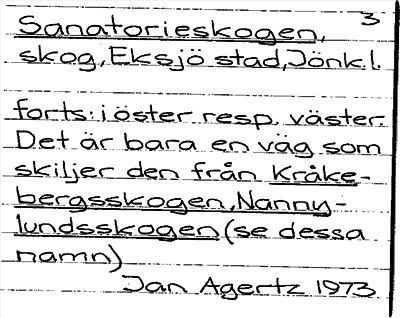 3
Sanatorieskogen,
skog, Eksjö stad, Jönk.l.
forts: i öster resp. väster.
Det är bara en väg som
skiljer den från Kråke-
bergsskogen, Nanny-
lundsskogen (se dessa
namn)
Jan Agertz 1973